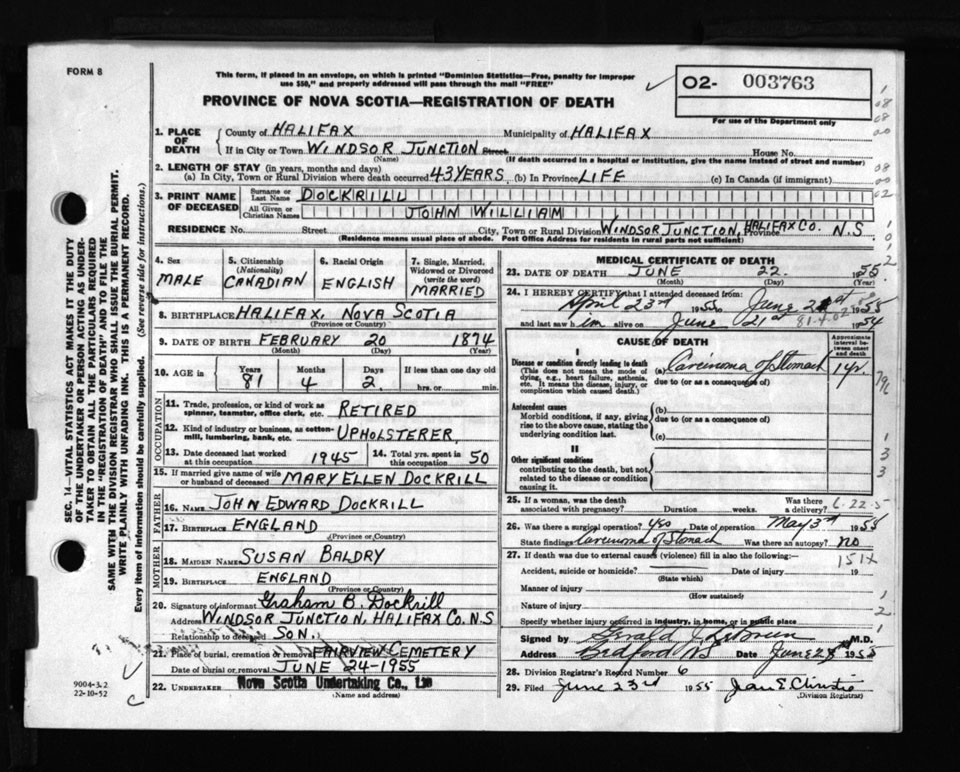 FORM 8
This form, if placed in an envelope, on which is printed "Dominion Statistics—Free, penalty for improper
use $50," and properly addressed will pass through the mail "FREE"
O2- 003763
For use of the Department only
PROVINCE OF NOVA SCOTIA—REGISTRATION OF DEATH
1. PLACE OF DEATH
County of HALIFAX Municipality of HALIFAX
If in City or Town WINDSOR JUNCTION Street House No.
(Name) (If death occurred in a hospital or institution, give the name instead of street and number)
2. LENGTH OF STAY (in years, months and days)
(a) In City, Town or Rural Division where death occurred 43 YEARS (b) In Province LIFE (c) In Canada (if immigrant)
3. PRINT NAME OF DECEASED
Surname or Last Name DOCKRILL
All Given or Christian Names JOHN WILLIAM
RESIDENCE No. Street City, Town or Rural Division WINDSOR JUNCTION, Province HALIFAX CO. N.S.
(Residence means usual place of abode. Post Office Address for residents in rural parts not sufficient)
4. Sex MALE
5. Citizenship (Nationality) CANADIAN
6. Racial Origin ENGLISH
7. Single, Married, Widowed or Divorced (write the word) MARRIED
8. BIRTHPLACE HALIFAX, NOVA SCOTIA
(Province or Country)
9. DATE OF BIRTH FEBRUARY 20 1874
(Month) (Day) (Year)
10. AGE in Years 81 Months 4 Days 2. If less than one day
hrs. or min.
OCCUPATION
11. Trade, profession, or kind of work as spinner, teamster, office clerk, etc. RETIRED
12. Kind of industry or business, as cotton-mill, lumbering, bank, etc. UPHOLSTERER
13. Date deceased last worked at this occupation 1945 14. Total yrs. spent in this occupation 50
15. If married give name of wife or husband of deceased MARY ELLEN DOCKRILL
FATHER
16. NAME JOHN EDWARD DOCKRILL
17. BIRTHPLACE ENGLAND
(Province or Country)
MOTHER
18. MAIDEN NAME SUSAN BALDRY
19. BIRTHPLACE ENGLAND
(Province or Country)
20. Signature of informant Graham B. Dockrill
Address WINDSOR JUNCTION, HALIFAX CO. N.S
Relationship to deceased SON.
21. Place of burial, cremation or removal FAIRVIEW CEMETERY
Date of burial or removal JUNE 24-1955
22. UNDERTAKER Nova Scotia Undertaking Co., Ltd
(Name and address)
MEDICAL CERTIFICATE OF DEATH
23. DATE OF DEATH JUNE 22. 1955
(Month) (Day) (Year)
24. I HEREBY CERTIFY that I attended deceased from
April 23rd 1955 to June 1955
and last saw him alive on June 21st 1954
CAUSE OF DEATH
Approximate interval between onset and death
I
Disease or condition directly leading to death (a) Carcinoma of Stomach 1 yr.
(This does not mean the mode of dying, e.g., heart failure, asthenia, etc. It means the disease, injury, or complication which caused death.)
due to (or as a consequence of)
Antecedent causes
Morbid conditions, if any, giving rise to the above cause, stating the underlying condition last.
(b)
due to (or as a consequence of)
(c)
II
Other significant conditions
contributing to the death, but not related to the disease or condition causing it.
25. If a woman, was the death associated with pregnancy? Duration weeks. Was there a delivery? 6-22-5
26. Was there a surgical operation? yes Date of operation May 3rd 1955
State findings Carcinoma of Stomach Was there an autopsy? no
27. If death was due to external causes (violence) fill in also the following:— 151X
Accident, suicide or homicide? Date of injury 19
(State which)
Manner of injury
(How sustained)
Nature of injury
Specify whether injury occurred in industry, in home, or in public place
Signed by Gerald J. M.D.
Address Bedford NS Date June 1955
28. Division Registrar's Record Number 6
29. Filed June 23rd 1955 Jan E. Christie
(Division Registrar)
SEC. 14—VITAL STATISTICS ACT MAKES IT THE DUTY
OF THE UNDERTAKER OR PERSON ACTING AS UNDER-
TAKER TO OBTAIN ALL THE PARTICULARS REQUIRED
IN THE "REGISTRATION OF DEATH" AND TO FILE THE
SAME WITH THE DIVISION REGISTRAR WHO SHALL ISSUE THE BURIAL PERMIT.
WRITE PLAINLY WITH UNFADING INK. THIS IS A PERMANENT RECORD.
Every item of information should be carefully supplied. (See reverse side for instructions.)
9004-3.2
22-10-52